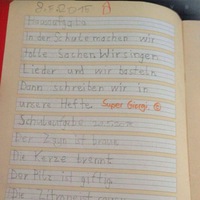 8.5.2015 A
Hausaufgabe
in der Schule machen wir
tolle Sachen. Wir singen
Lieder und wir basteln
Dann schreiben wir in
unsere Hefte. Super Giorgi
Der Zaun ist braun
Die Kerze brennt
Der Pilz ist giftig
Die Zitrone ist